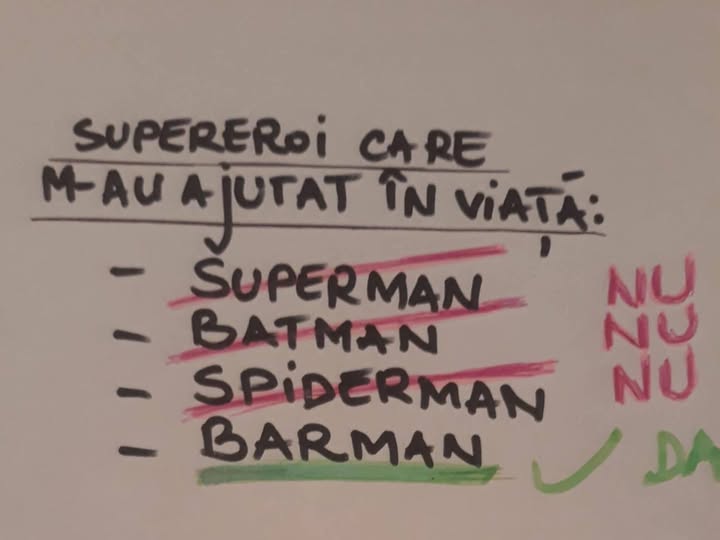 SUPEREROi CARE
M-AU AJUTAT ÎN ViAȚĂ:
- SUPERMAN NU
- BATMAN NU
- SPiDERMAN NU
- BARMAN ✓ DA